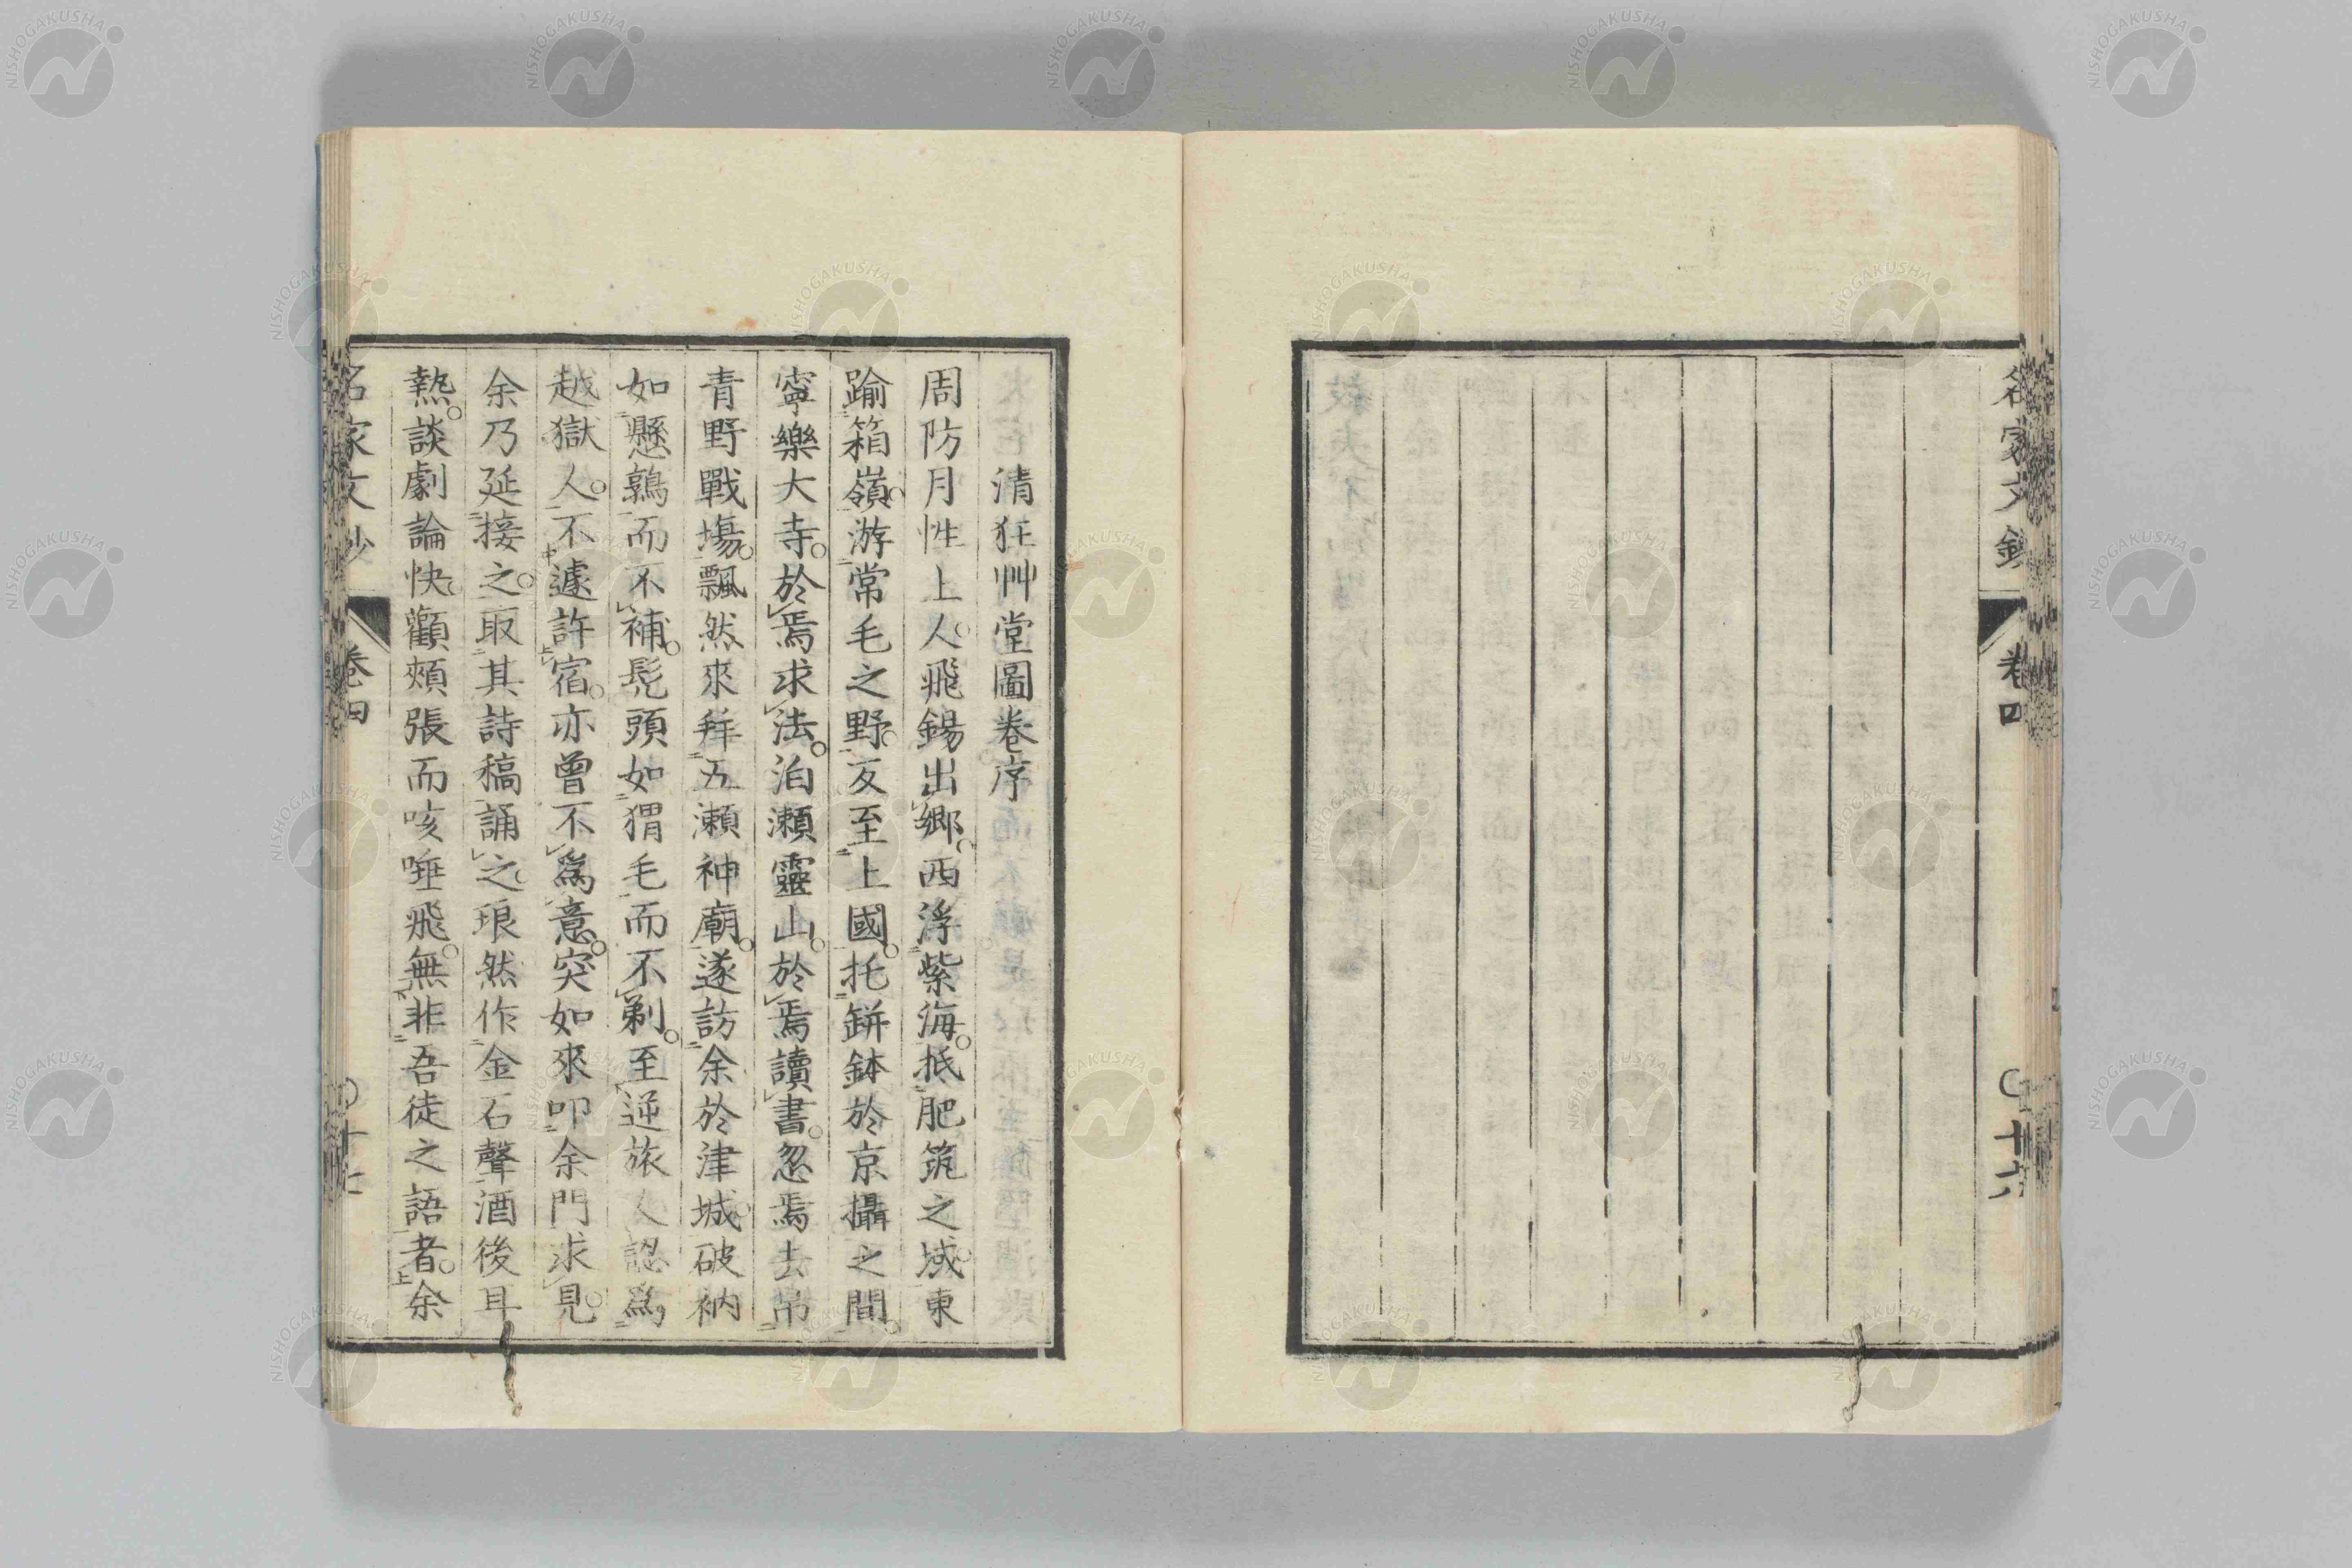 名家文鈔
卷四
十六
清狂艸堂圖卷序
周防月性上人飛錫出鄉西浮紫海抵肥筑之域東
踰箱嶺游常毛之野反至上國托缾鉢於京攝之間
寧樂大寺於焉求法泊瀨靈山於焉讀書忽焉去弔
青野戰塲飄然來拜五瀨神廟遂訪余於津城破衲
如懸鶉而不補髡頭如猬毛而不剃至逆旅人認爲
越獄人不遽許宿亦曾不爲意突如來叩余門求見
余乃延接之取其詩稿誦之琅然作金石聲酒後耳
熱談劇論快顴頰張而咳唾飛無非吾徒之語者余
名家文鈔
卷四
十七
NISHOGAKUSHA